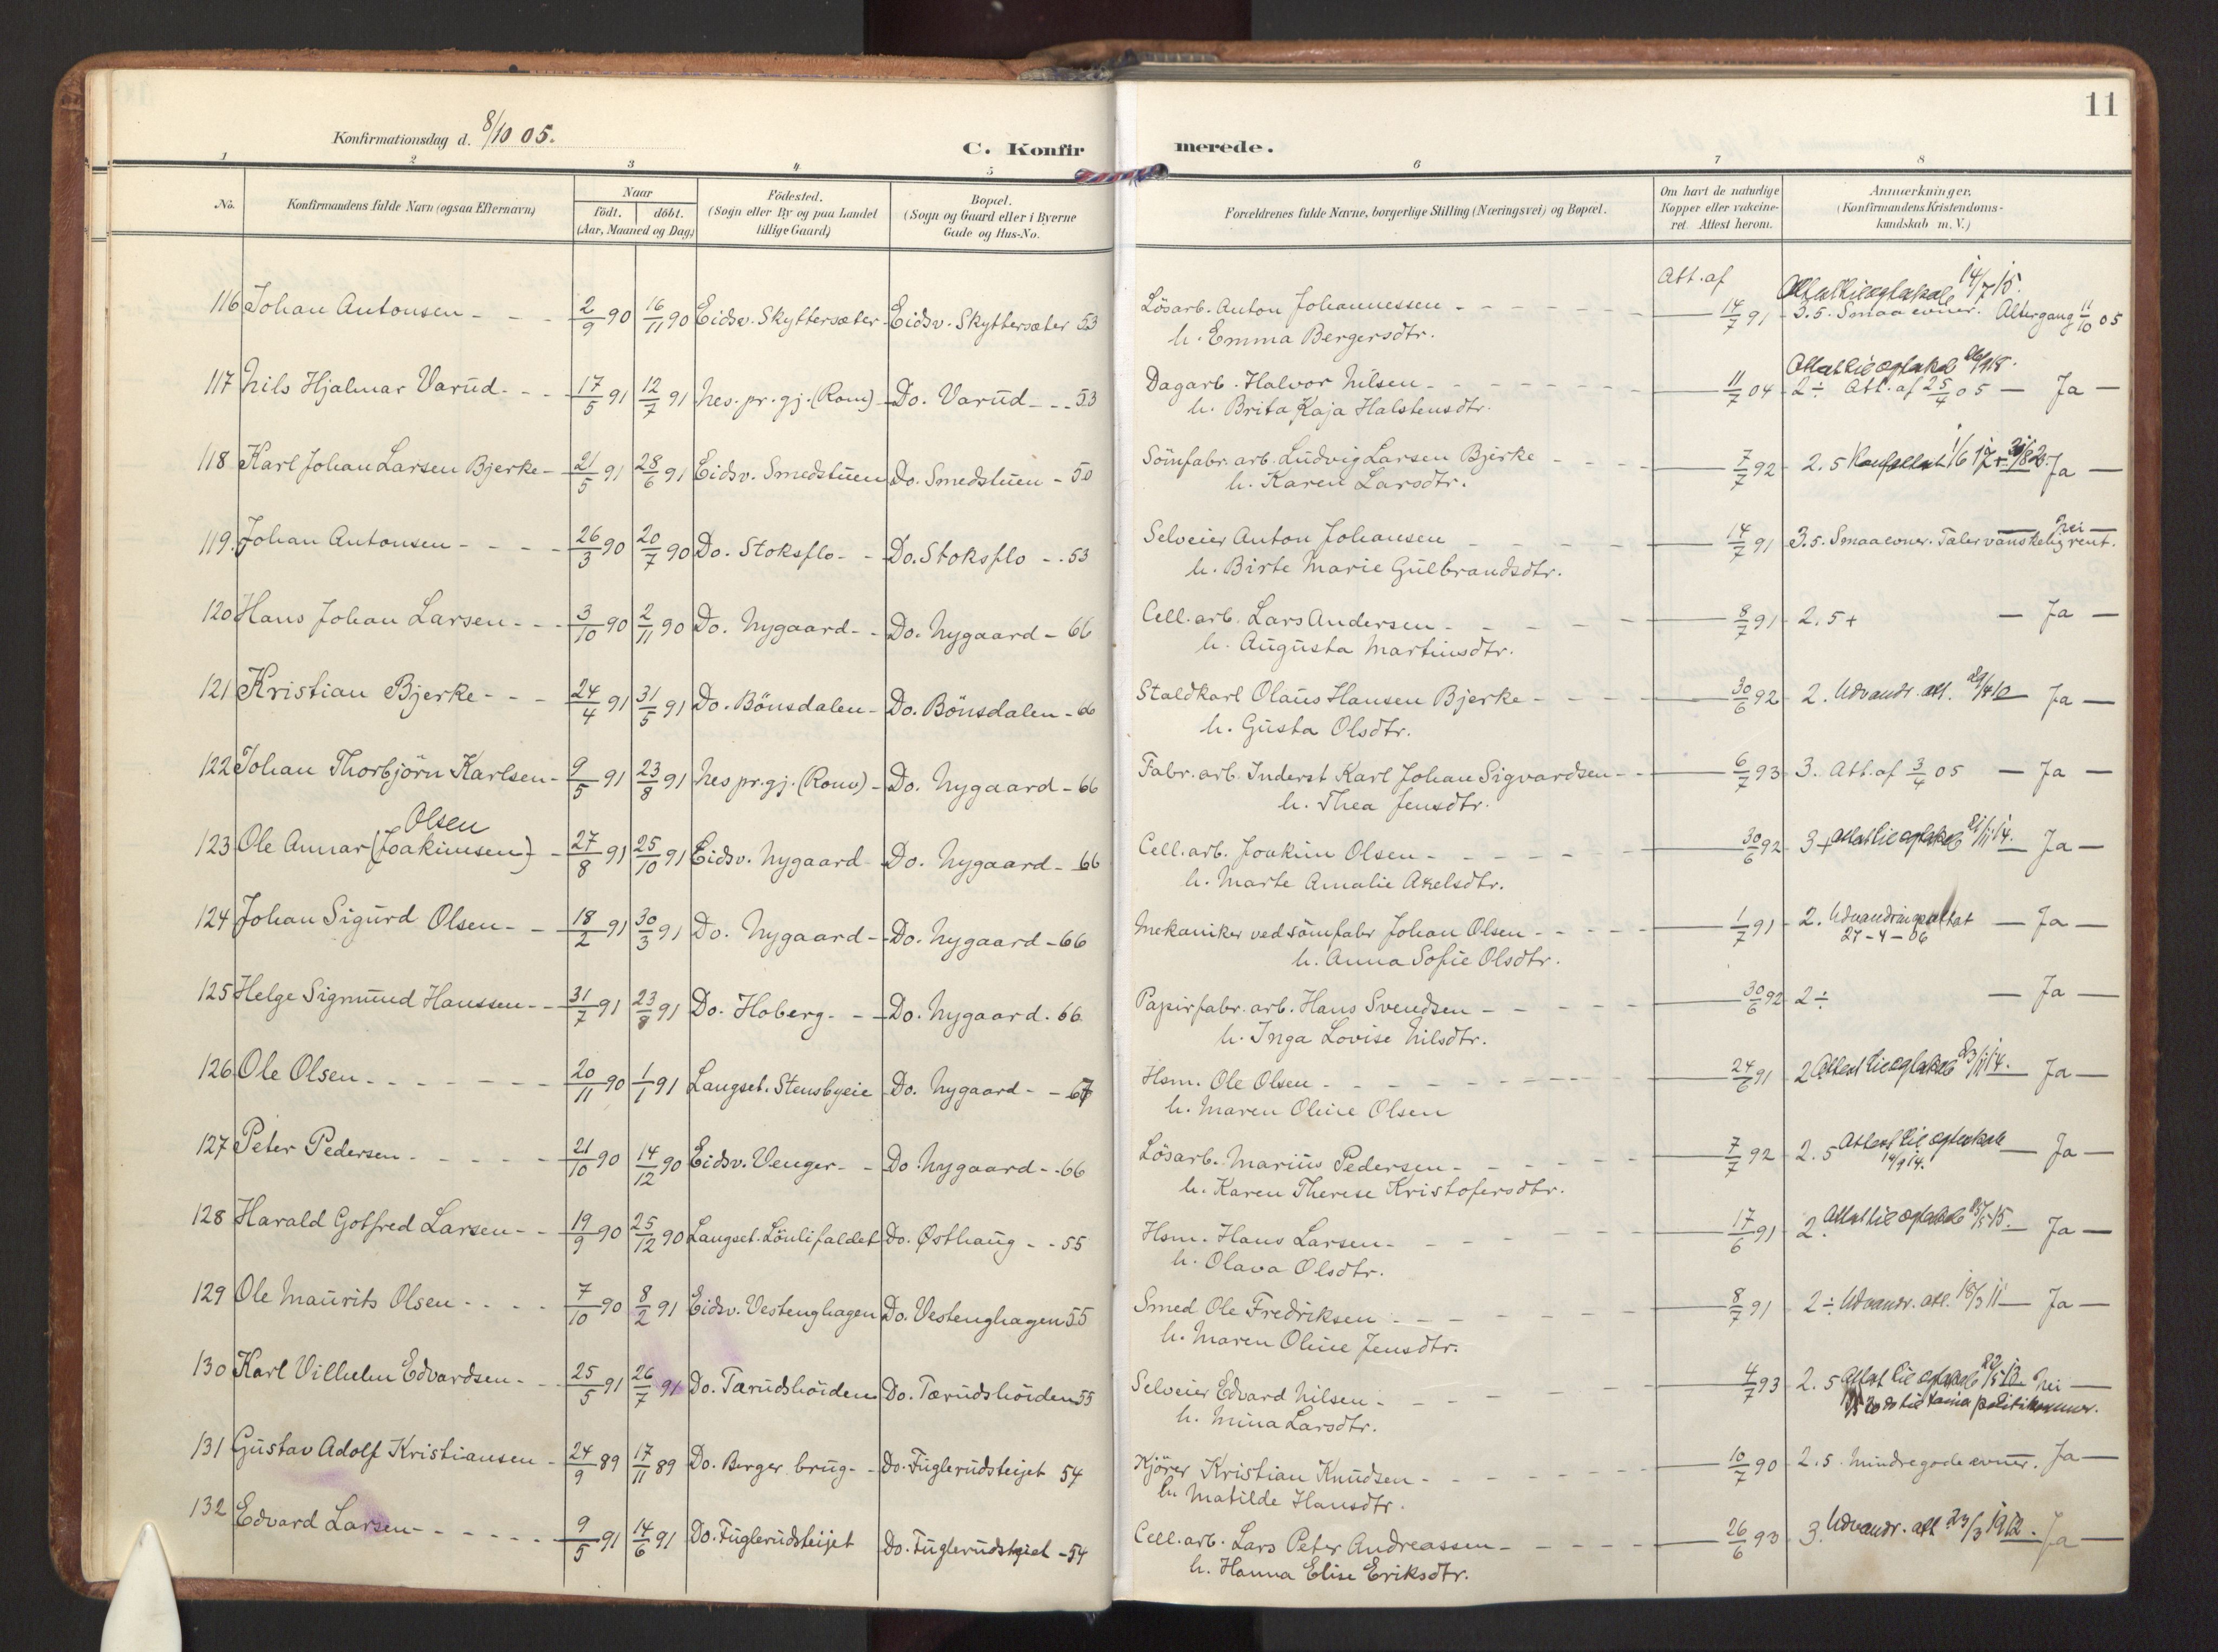 11
Konfirmationsdag d. 8/10 05.
C. Konfirmerede.
1 2 3 4 5 6 7 8
No. Konfirmandens fulde Navn (ogsaa Efternavn) Naar født. døbt. (Aar, Maaned og Dag) Födested. (Sogn eller By og paa Landet tillige Gaard) Bopæl. (Sogn og Gaard eller i Byerne Gade og Hus-No. Forældrenes fulde Navne, borgerlige Stilling (Næringsvei) og Bopæl. Om havt de naturlige Kopper eller vakcineret. Attest herom. Anmærkninger, (Konfirmandens Kristendomskundskab m. V.)
Att. af 14/7 15.
116 Johan Antonsen - - - 2/9 90 16/11 90 Eidsv. Skyttersæter - Eidsv. Skyttersæter 53 Lösarb. Anton Johannessen - - - 14/7 91 - 3.5. Smaa evner. Altergang 11/10 05
h. Emma Bergersdtr.
117 Nils Hjalmar Varud - - 17/5 91 12/7 91 Nes. pr. gj. (Rom) - Do. Varud - - 53 Dagarb. Halvor Nilsen - - - 11/7 04 - 2 ÷ Att. af 25/4 05 — Ja —
h. Brita Kaja Halstensdtr.
118 Karl Johan Larsen Bjerke - 21/5 91 28/6 91 Eidsv. Smedstuen Do. Smedstuen - 50 Sömfabr. arb. Ludvig Larsen Bjerke - - 7/7 92 2.5 Ja —
h. Karen Larsdtr.
119. Johan Antonsen - - - 26/3 90 20/7 90 Do. Stoksflo - - Do. Stoksflo - - 53 Selveier Anton Johansen - - 14/7 91 3.5. Smaa evner. Taler vanskelig rent. Nei —
h. Birte Marie Gulbrandsdtr.
120 Hans Johan Larsen - - - 3/10 90 2/11 90 Do. Nygaard - - Do. Nygaard - 66 Cell. arb. Lars Andersen - - - 8/7 91 2.5 + — Ja —
h. Augusta Martinsdtr.
121 Kristian Bjerke - - - 24/4 91 31/5 91 Do. Bönsdalen - Do. Bönsdalen - 66 Staldkarl Olaus Hansen Bjerke - - 30/6 92 2. Udvandr. att. 29/4 10 Ja —
h. Gusta Olsdtr.
122 Johan Thorbjörn Karlsen - 9/5 91 23/8 91 Nes pr. gj. (Roms) - Do. Nygaard - 66 Fabr. arb. Inderst Karl Johan Sigvardsen - - 6/7 93 3. Att. af 3/4 05 — Ja —
h. Thea Jensdtr.
Olsen
123 Ole Annar (Joakimsen) - 27/8 91 25/10 91 Eidsv. Nygaard - Do. Nygaard - 66 Cell. arb. Joakim Olsen - - - 30/6 92 3 + Attest til ægteskab 21/11 14. Ja —
h. Marte Amalie Axelsdtr.
124 Johan Sigurd Olsen - - 18/2 91 30/3 91 Do. Nygaard - - Do. Nygaard - 66 Mekaniker ved sömfabr Johan Olsen - - - 1/7 91 2. Udvandringsattest — Ja —
27-4-06
h. Anna Sofie Olsdtr.
125 Helge Sigmund Hanssen - - 31/7 91 23/8 91 Do. Hoberg - - - Do. Nygaard. 66 Papirfabr. arb. Hans Svendsen - - - 30/6 92 2 ÷ — Ja —
h. Inga Lovise Nilsdtr.
126 Ole Olsen - - - 20/11 90 1/1 91 Langset. Stensbyeie Do. Nygaard - - 67 Hsm. Ole Olsen - - - 24/6 91 2 Attest til ægteskab 23/11 14. Ja —
h. Maren Oline Olsen
127 Peter Pedersen - - - 21/10 90 14/12 90 Eidsv. Venger - - Do. Nygaard - - 66 Lösarb. Marius Pedersen - - - 7/7 92 2.5 Attest til ægteskab — Ja —
14/9 14.
h. Karen Therese Kristofersdtr.
128 Harald Gotfred Larsen - - 19/9 90 25/12 90 Langset. Lönlifaldet Do. Østhaug - - 55 Hsm. Hans Larsen - - - 17/6 91 2. Attest til ægteskab Ja —
h. Olava Olsdtr.
129 Ole Maurits Olsen - - - 7/10 90 8/2 91 Eidsv. Vestenghagen Do. Vestenghagen 55 Smed Ole Fredriksen - - - 8/7 91 2 ÷ Udvandr. att. 18/3 11 — Ja —
h. Maren Oline Jensdtr.
130 Karl Vilhelm Edvardsen - 25/5 91 26/7 91 Do. Tærudshöiden Do. Tærudshöiden 55 Selveier Edvard Nilsen - - - 4/7 93 2.5 Attest til ægteskab Nei —
h. Mina Larsdtr.
131 Gustav Adolf Kristiansen - 24/9 89 17/11 89 Do. Berger brug - - Do. Fuglerudsteijet 54 Kjörer Kristian Knudsen - - - 10/7 90 2.5. Mindre gode evner. Ja —
h. Matilde Hansdtr.
132 Edvard Larsen - - - 9/5 91 14/6 91 Do. Fuglerudsteijet Do. Fuglerudsteiet - 54 Cell. arb. Lars Peter Andreassen - - - 26/6 93 3. Udvandr. att 23/3 1912. Ja —
h. Hanna Elise Eriksdtr.